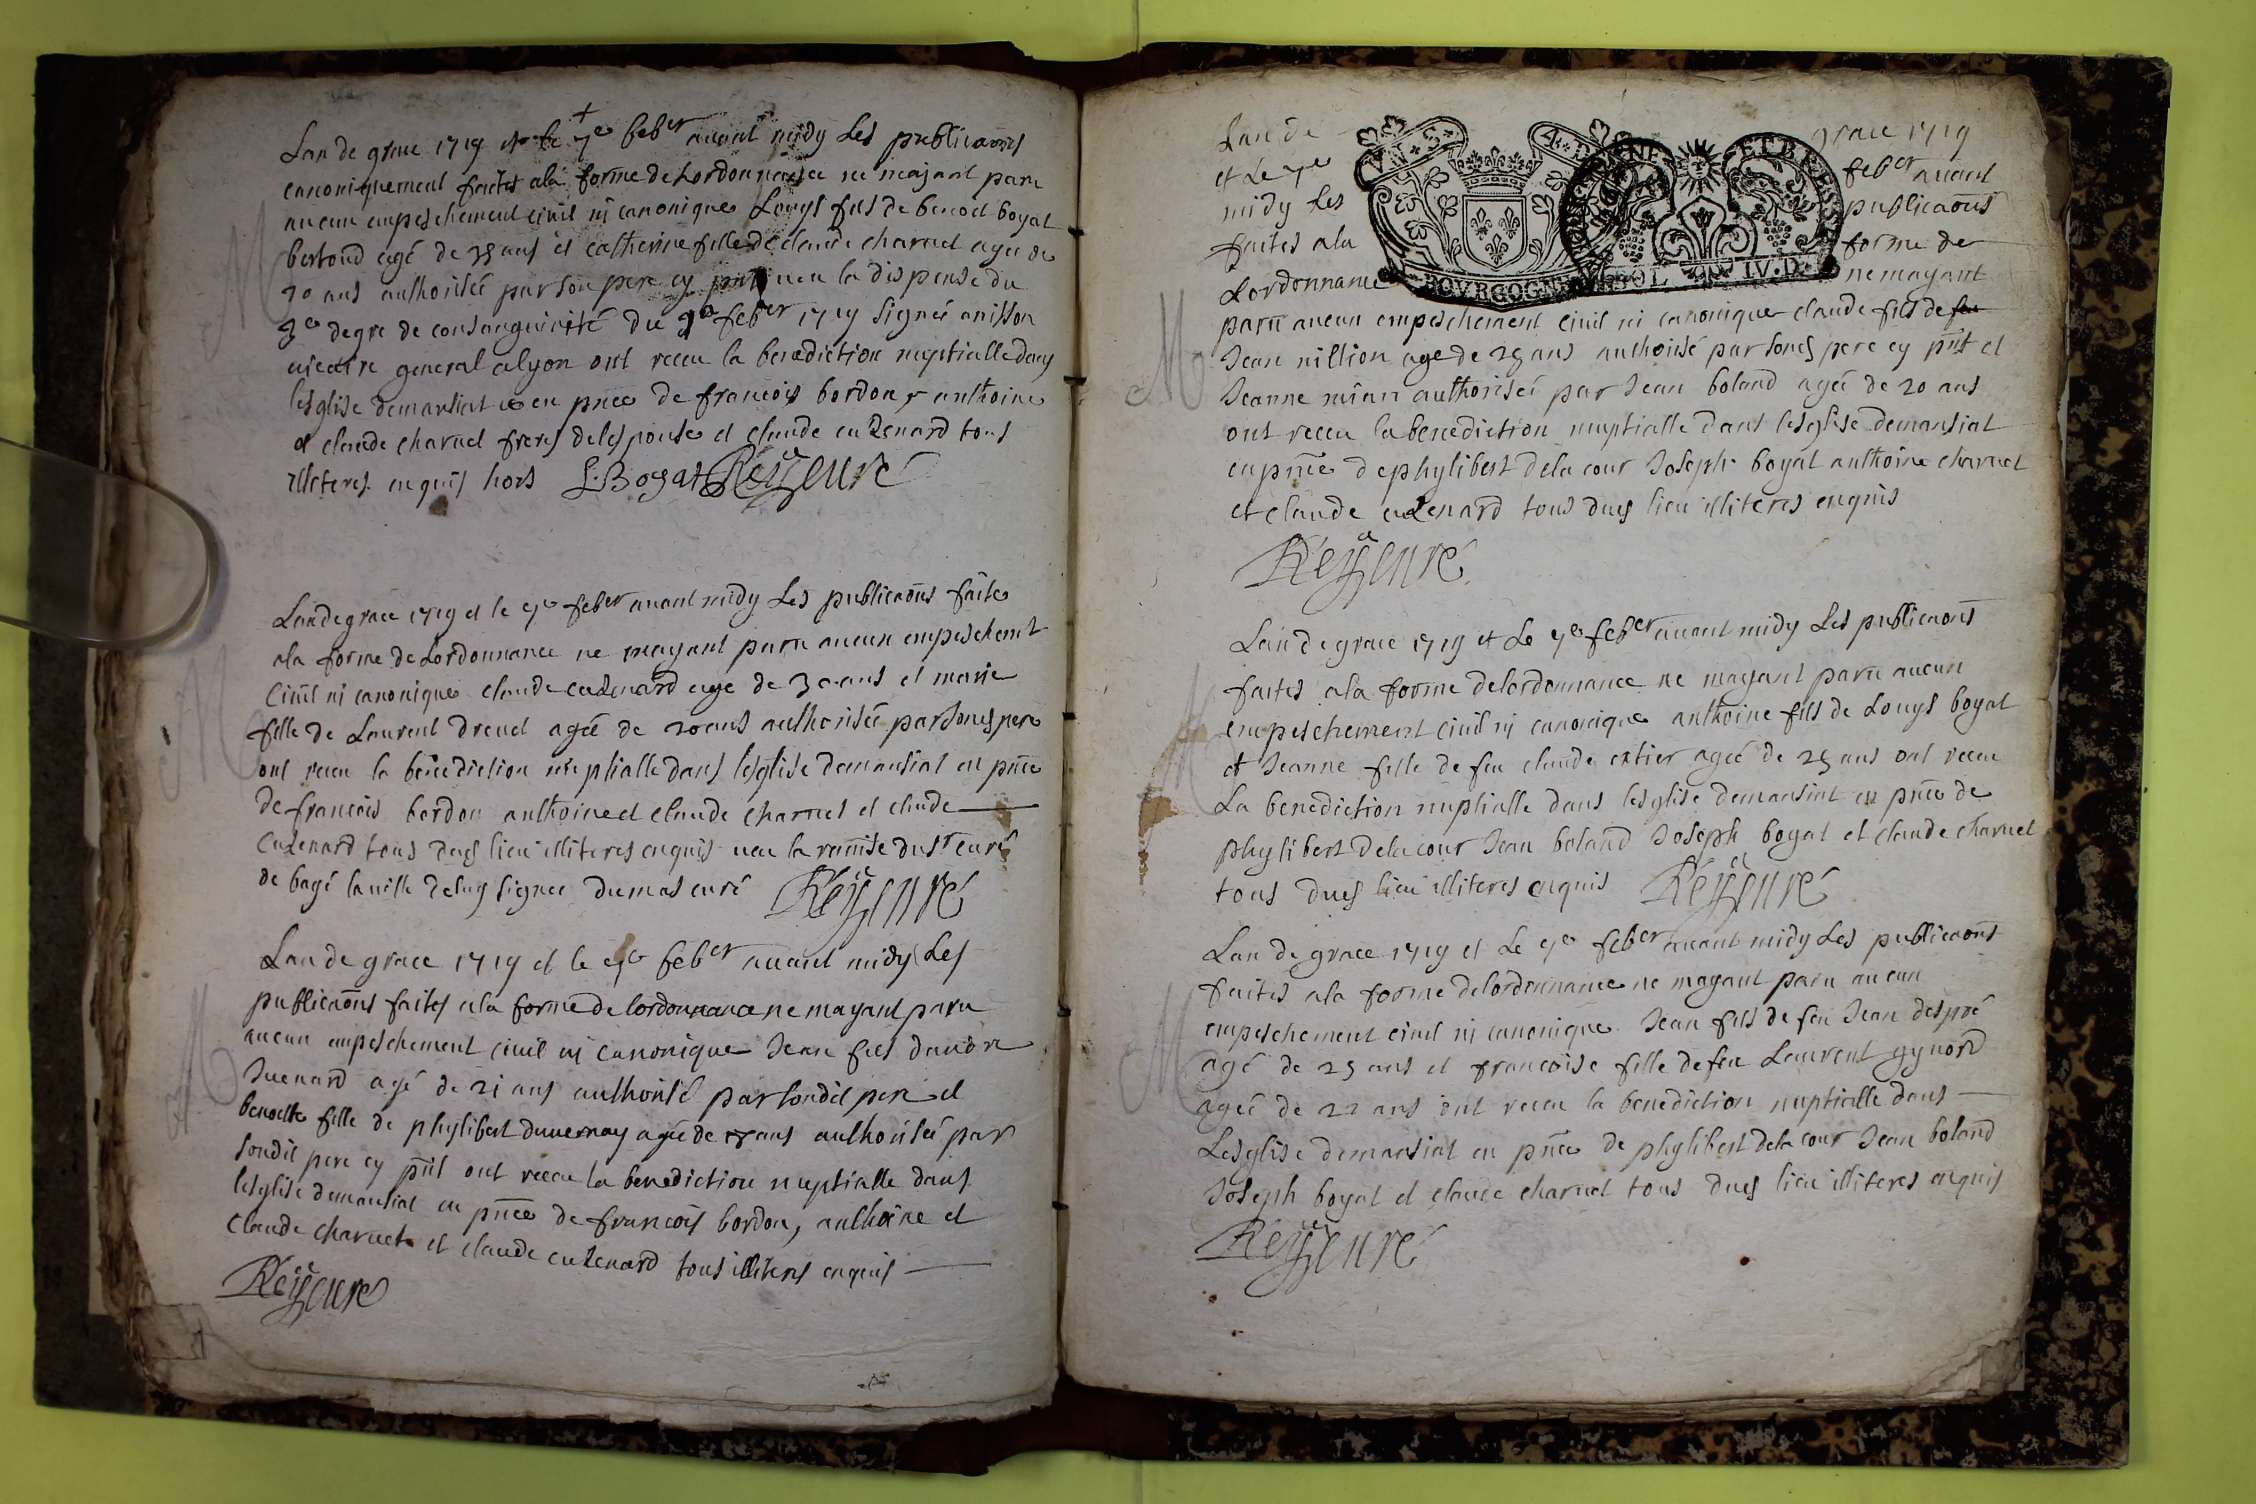 Lan de grace 1719 et le 7e feber auant midy Les publicaons
canoniquement faites ala forme de Lordonnance ne majant paru
aucun empeschement civil ni canonique Louys fils de benoet boyat
agé de 35 ans et catherine fille de claude charuet agee de
20 ans authorisée par son pere cy pnt ueu la dispense du
3e degre de consanguinité du feber 1719 signée anisson
uicaire general alyon ont receu la benediction nuptialle dans
lesglise demansiat en pnce de francois bordon anthoine
et claude charuet freres delesponse et claude cuZenard tous
illiteres enquis hors L. Bogat Rey curé
Lan de grace 1719 et le 7e feber auant midy Les publicaons faites
ala forme de Lordonnance ne mayant paru aucun empeschemt
Civil ni canonique claude cuZenard age de 30 ans et marie
fille de Laurent Dreuet agée de 20 ans authorisée par sond pere
ont receu la benediction nuptialle dans lesglise demansiat en pnce
de francois bordon anthoine et claude charuet et claude
CuZenard tous dud lieu illiteres enquis ueu la remise du sr curé
de bagé la uille de luy signee Dumas curé Rey curé
Lan de grace 1719 et le 7e feber auant midy Les
publicaons faites ala forme de lordonnance ne mayant paru
aucun empeschement civil ni canonique Jean fils
Juenard agé de 21 ans authorisé par sondit pere et
benoette fille de phylibert duuernay agée de ans authorisée par
sondit pere cy pnt ont receu la benediction nuptialle dans
lesglise demansiat en pnce de francois bordon, anthoine et
claude charuet et claude cuZenard tous illiteres enquis
Rey curé
Lan de grace 1719
et Le 7e feber auant
midy Les publicaons
faites ala forme de
Lordonnance ne mayant
paru aucun empeschement civil ni canonique claude fils de feu
Jean nillion age de 25 ans authorisé par sond pere cy pnt et
Jeanne authorisée par Jean boland agée de 20 ans
ont receu la benediction nuptialle dans lesglise demansiat
en pnce de phylibert dela cour Joseph boyat anthoine charuet
et claude cuZenard tous dud lieu illiteres enquis
Rey curé
Lan de grace 1719 et Le 7e feber auant midy Les publicaons
faites ala forme delordonnance ne mayant paru aucun
empeschement civil ni canonique anthoine fils de Louys boyat
et Jeanne fille de feu claude agée de 25 ans ont receu
La benediction nuptialle dans lesglise demansiat en pnce de
phylibert delacour Jean boland Joseph boyat et claude charuet
tous dud lieu illiteres enquis Rey curé
Lan de grace 1719 et Le 7e feber auant midy Les publicaons
faites ala forme delordonnance ne mayant paru aucun
empeschement civil ni canonique Jean fils de feu Jean despré
agé de 25 ans et francoise fille de feu Laurent gynord
agée de 22 ans ont receu la benediction nuptialle dans
Lesglise demansiat en pnce de phylibert dela cour Jean boland
Joseph boyat et claude charuet tous dud lieu illiteres enquis
Rey curé